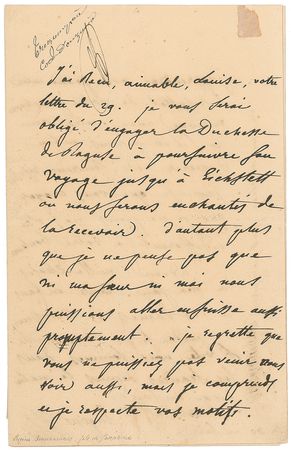 J'ai Recu, aimable, Louise, votre
lettre du 29. je vous serai
obligé d'engager la Duchesse
de Raguse à poursuivre son
voyage jusqu'à Eichstett
ou nous serons enchantés de
la recevoir. d'autant plus
que je ne pense pas que
ni ma soeur ni moi nous
puissions aller en suisse aussi
promptement. je regrette que
vous ne puissiez pas venir nous
voir aussi, mais je comprends
et je respecte vos motifs.